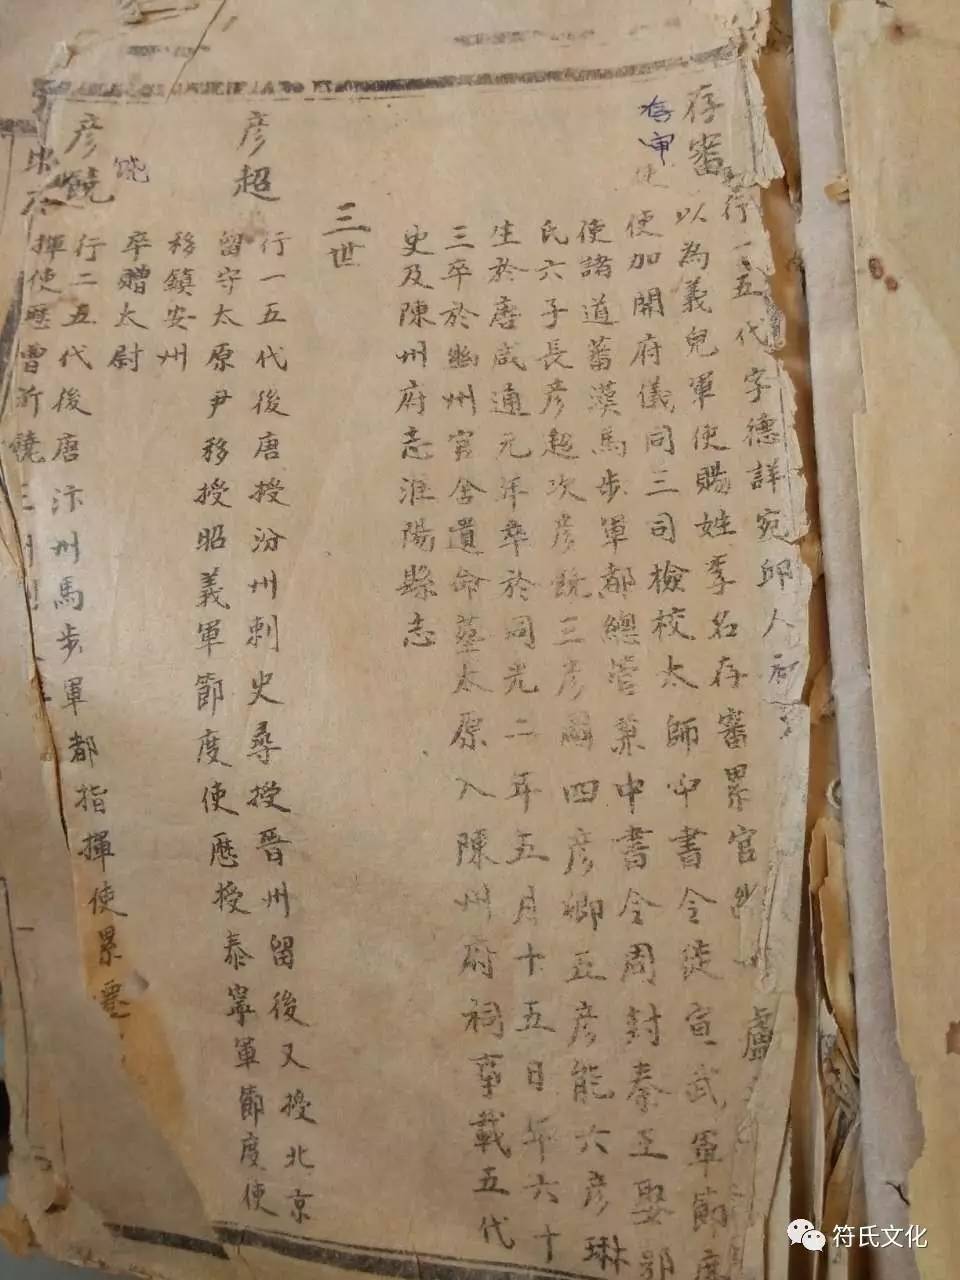 存審
存审
行一五代字德詳宛邱人初
盧
以為義兒軍使賜姓李名存審累官
使加開府儀同三司檢校太師中書令徒宣武軍節度
使諸道蕃漢馬步軍都總管兼中書令周封秦王娶郭
氏六子長彦超次彦饒三彦圖四彦卿五彦能六彦琳
生於唐咸通元年卒於同光二年五月十五日年六十
三卒於幽州官舍遺命塟太原入陳州府祠事載五代
史及陳州府志淮陽縣志
三世
彥超
行一五代後唐授汾州刺史尋授晉州留後又授北京
留守太原尹移授昭義軍節度使歷授泰寧軍節度使
移鎮安州
卒贈太尉
彥饒
饶
行二五代後唐汴州馬步軍都指揮使累遷
揮使歷曹沂饒三州
符氏文化